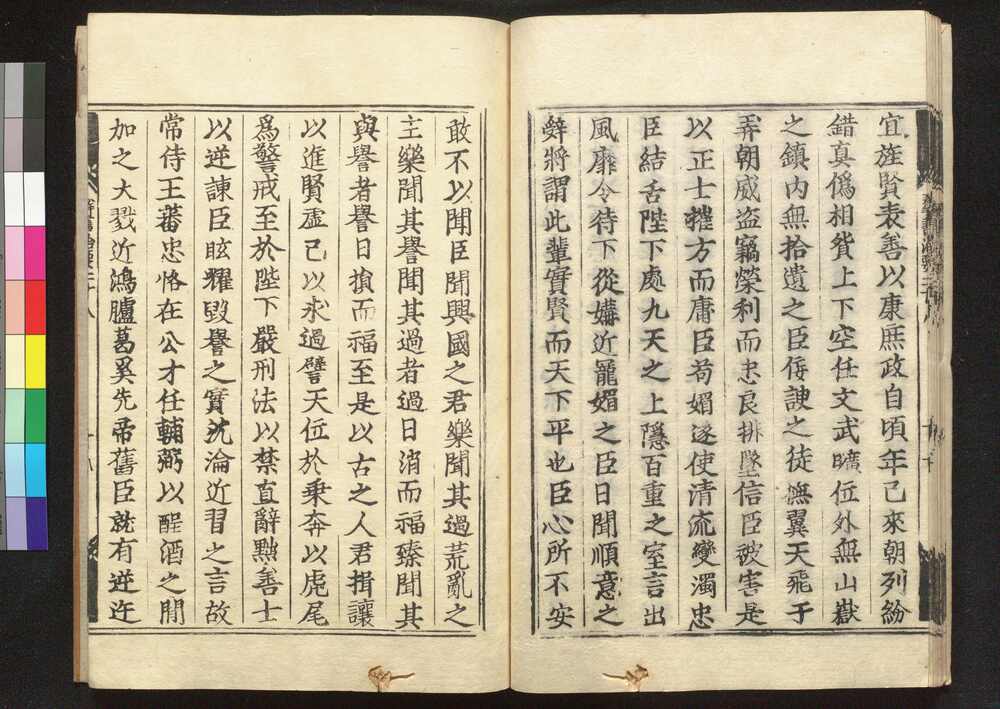 宜旌賢表善以康庶政自頃年已來朝列紛
錯真僞相貿上下空任文武曠位外無山嶽
之鎮內無拾遺之臣佞諛之徒憮翼天飛于
弄朝威盜竊榮利而忠良排墜信臣被害是
以正士摧方而庸臣苟媚遂使清流變濁忠
臣結舌陛下處九天之上隱百重之室言出
風靡令行下從媾近寵媚之臣日聞順意之
辭將謂此輩實賢而天下平也臣心所不安
敢不以聞臣聞興國之君樂聞其過荒亂之
主樂聞其譽聞其過者過日消而福臻聞其
與譽者譽日損而福至是以古之人君揖讓
以進賢虛已以求過譬天位於乗奔以虎尾
爲警戒至於陛下嚴刑法以禁直辭黜善士
以逆諫臣眩耀毀譽之實沈淪近習之言故
常侍王蕃忠恪在公才任輔弼以酲酒之閒
加之大戮近鴻臚葛奚先帝舊臣就有逆迕
群書治要二十八